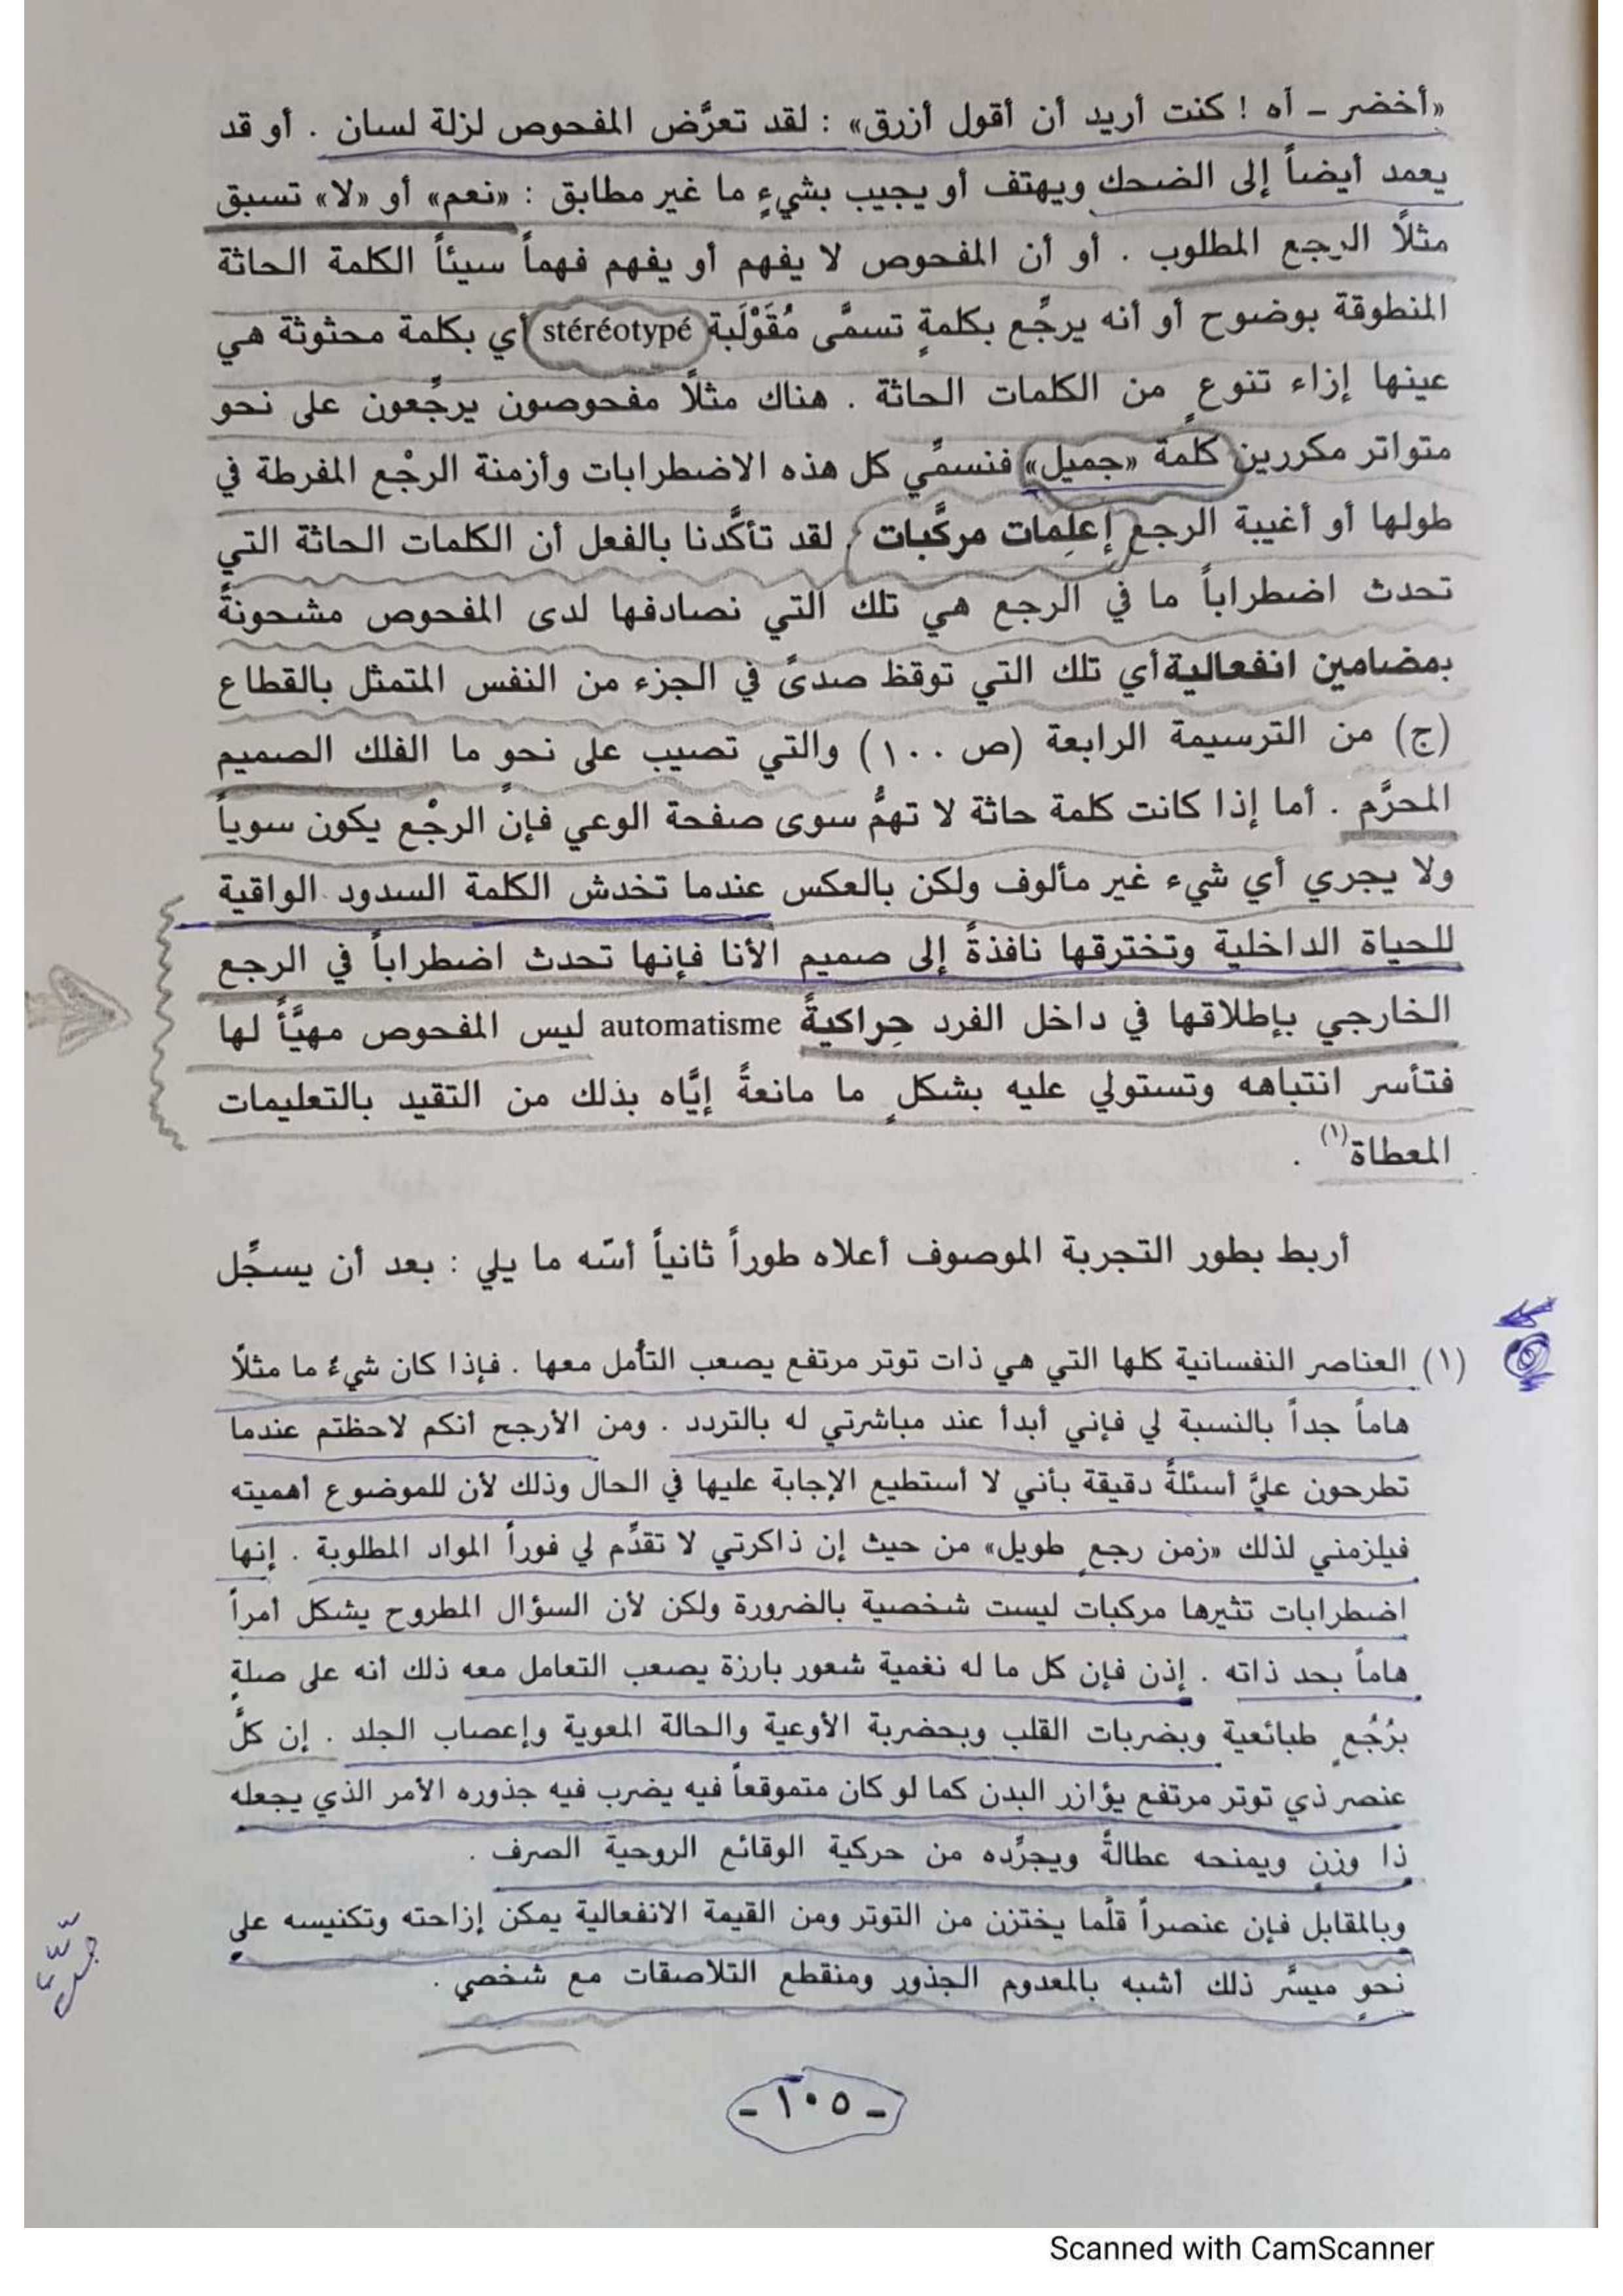 «أخضر ـ أه ! كنت أريد أن أقول أزرق» : لقد تعرَّض المفحوص لزلة لسان . أو قد
يعمد أيضاً إلى الضحك ويهتف أو يجيب بشيءٍ ما غير مطابق : «نعم» أو «لا» تسبق
مثلاً الرجع المطلوب . أو أن المفحوص لا يفهم أو يفهم فهماً سيئاً الكلمة الحاثة
المنطوقة بوضوح أو أنه يرجِّع بكلمةٍ تسمَّى مُقَوْلَبة stéréotypé أي بكلمة محثوثة هي
عينها إزاء تنوعٍ من الكلمات الحاثة . هناك مثلاً مفحوصون يرجِّعون على نحو
متواتر مكررين كلمة «جميل» فنسمِّي كل هذه الاضطرابات وأزمنة الرجْع المفرطة في
طولها أو أغيبة الرجع إعلِمات مركَّبات . لقد تأكَّدنا بالفعل أن الكلمات الحاثة التي
تحدث اضطراباً ما في الرجع هي تلك التي نصادفها لدى المفحوص مشحونةً
بمضامين انفعالية أي تلك التي توقظ صدىً في الجزء من النفس المتمثل بالقطاع
(ج) من الترسيمة الرابعة (ص ١٠٠) والتي تصيب على نحوٍ ما الفلك الصميم
المحرَّم . أما إذا كانت كلمة حاثة لا تهمُّ سوى صفحة الوعي فإنَّ الرجْع يكون سوياً
ولا يجري أي شيء غير مألوف ولكن بالعكس عندما تخدش الكلمة السدود الواقية
للحياة الداخلية وتخترقها نافذةً إلى صميم الأنا فإنها تحدث اضطراباً في الرجع
الخارجي بإطلاقها في داخل الفرد حِراكيةً automatisme ليس المفحوص مهيَّأ لها
فتأسر انتباهه وتستولي عليه بشكلٍ ما مانعةً إيَّاه بذلك من التقيد بالتعليمات
المعطاة(١) .
أربط بطور التجربة الموصوف أعلاه طوراً ثانياً أسّه ما يلي : بعد أن يسجِّل
(١) العناصر النفسانية كلها التي هي ذات توتر مرتفع يصعب التأمل معها . فإذا كان شيءٌ ما مثلاً
هاماً جداً بالنسبة لي فإني أبدأ عند مباشرتي له بالتردد . ومن الأرجح أنكم لاحظتم عندما
تطرحون عليَّ أسئلةً دقيقة بأني لا أستطيع الإجابة عليها في الحال وذلك لأن للموضوع أهميته
فيلزمني لذلك «زمن رجعٍ طويل» من حيث إن ذاكرتي لا تقدِّم لي فوراً المواد المطلوبة . إنها
اضطرابات تثيرها مركبات ليست شخصية بالضرورة ولكن لأن السؤال المطروح يشكل أمراً
هاماً بحد ذاته . إذن فإن كل ما له نغمية شعور بارزة يصعب التعامل معه ذلك أنه على صلةٍ
برُجُعٍ طبائعية وبضربات القلب وبحضربة الأوعية والحالة المعوية وإعصاب الجلد . إن كلَّ
عنصر ذي توتر مرتفع يؤازر البدن كما لو كان متموقعاً فيه يضرب فيه جذوره الأمر الذي يجعله
ذا وزنٍ ويمنحه عطالةً ويجرِّده من حركية الوقائع الروحية الصرف .
وبالمقابل فإن عنصراً قلَّما يختزن من التوتر ومن القيمة الانفعالية يمكن إزاحته وتكنيسه على
نحوٍ ميسَّر ذلك أشبه بالمعدوم الجذور ومنقطع التلاصقات مع شخصي .
ـ ١٠٥ ـ
Scanned with CamScanner